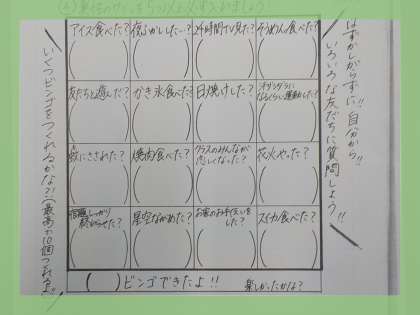 はずかしがらずに!! 自分から!!
いろいろな友だちに質問しよう!!
アイス食べた?
夜ふかしした…?
24時間テレビ見た?
そうめん食べた?
友だちと遊んだ?
かき氷食べた?
日焼けした?
オリンピックに
なるくらい運動した?
蚊にさされた?
焼肉食べた?
クラスのみんなが
恋しくなった?
花火やった?
宿題しっかり
終わらせた?
星空ながめた?
お家のお手伝いを
した?
スイカ食べた?
いくつビンゴをつくれるかな?(最高が10個つくれるよ!!)
( )ビンゴできたよ!!
楽しかったかな?